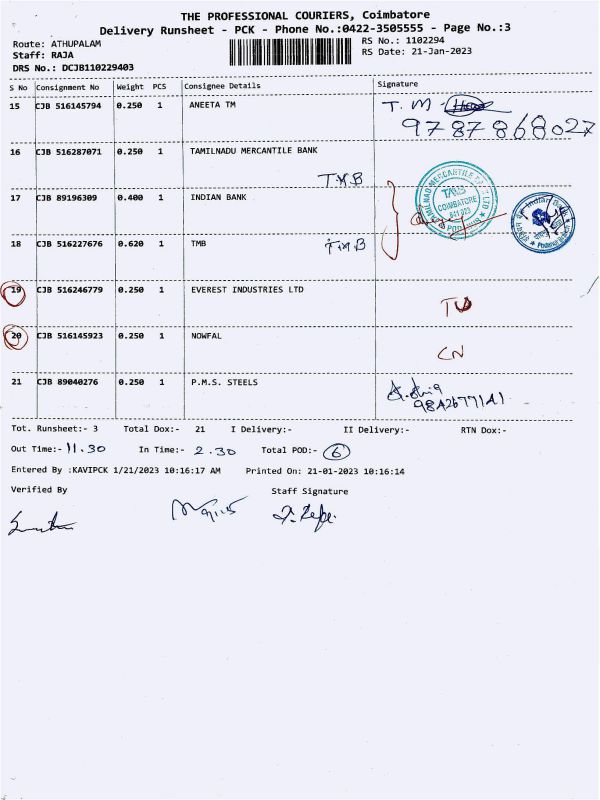 THE PROFESSIONAL COURIERS, Coimbatore
Delivery Runsheet - PCK - Phone No.:0422-3505555 - Page No.:3
Route: ATHUPALAM
RS No.: 1102294
Staff: RAJA
RS Date: 21-Jan-2023
DRS No.: DCJB110229403
S No Consignment No Weight PCS Consignee Details Signature
15 CJB 516145794 0.250 1 ANEETA TM T. M -
9787868027
16 CJB 516287071 0.250 1 TAMILNADU MERCANTILE BANK
TMB
17 CJB 89196309 0.400 1 INDIAN BANK
18 CJB 516227676 0.620 1 TMB TMB
19 CJB 516246779 0.250 1 EVEREST INDUSTRIES LTD
20 CJB 516145923 0.250 1 NOWFAL
CN
21 CJB 89040276 0.250 1 P.M.S. STEELS
Tot. Runsheet:- 3 Total Dox:- 21 I Delivery:- II Delivery:- RTN Dox:-
Out Time:- 11.30 In Time:- 2.30 Total POD:- 6
Entered By :KAVIPCK 1/21/2023 10:16:17 AM Printed On: 21-01-2023 10:16:14
Verified By Staff Signature